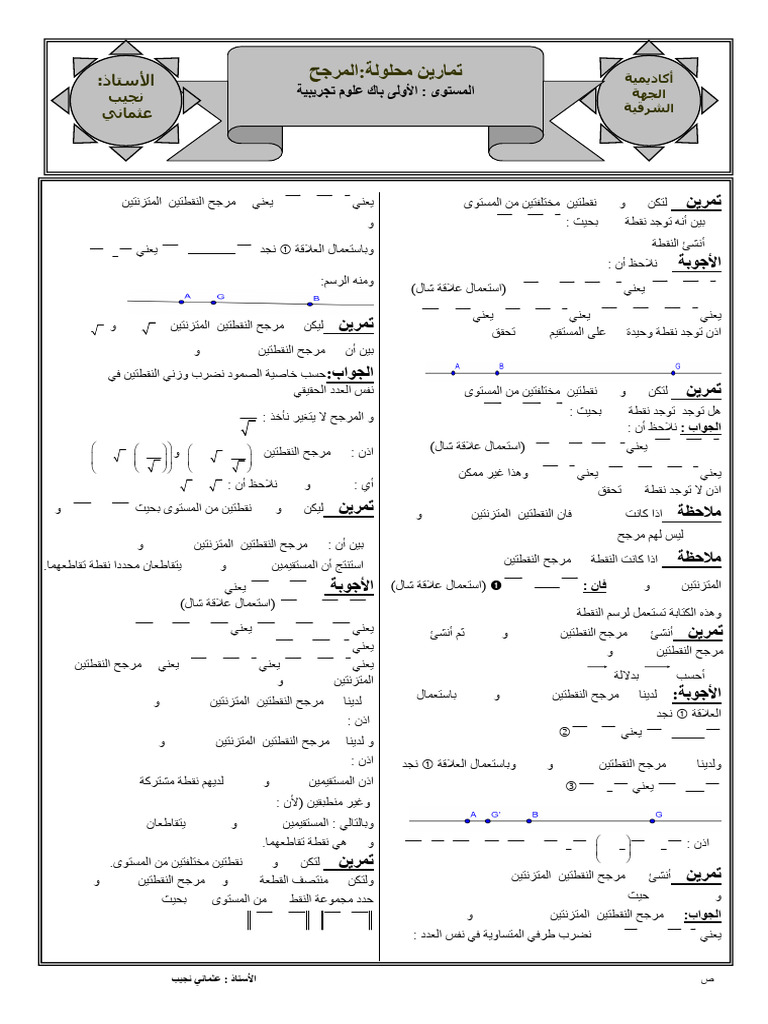 أكاديمية
الجهة
الشرقية
تمارين محلولة:المرجح
المستوى : الأولى باك علوم تجريبية
الأستاذ:
نجيب
عثماني
تمرين لتكن و نقطتين مختلفتين من المستوى
بين أنه توجد نقطة بحيث :
أنشئ النقطة
الأجوبة نلاحظ أن :
يعني (استعمال علاقة شال)
يعني يعني يعني
اذن توجد نقطة وحيدة على المستقيم تحقق
A B G
تمرين لتكن و نقطتين مختلفتين من المستوى
هل توجد توجد نقطة بحيث :
الجواب : نلاحظ أن :
يعني (استعمال علاقة شال)
يعني يعني وهذا غير ممكن
اذن لا توجد نقطة تحقق
ملاحظة اذا كانت فان النقطتين المتزنتين و
ليس لهم مرجح
ملاحظة اذا كانت النقطة مرجح النقطتين
المتزنتين و فان : ❶ (استعمال علاقة شال)
وهذه الكتابة تستعمل لرسم النقطة
تمرين أنشئ مرجح النقطتين و ثم أنشئ
مرجح النقطتين و
أحسب بدلالة
الأجوبة: لدينا مرجح النقطتين و باستعمال
العلاقة ① نجد
يعني ②
ولدينا مرجح النقطتين و وباستعمال العلاقة ① نجد
يعني ③
A G' B G
اذن :
تمرين أنشئ مرجح النقطتين المتزنتين
و حيث
الجواب: مرجح النقطتين المتزنتين و
يعني نضرب طرفي المتساوية في نفس العدد :
يعني يعني مرجح النقطتين المتزنتين
و
وباستعمال العلاقة ① نجد يعني
ومنه الرسم:
A G B
تمرين ليكن مرجح النقطتين المتزنتين √ و √
بين أن مرجح النقطتين و
الجواب: حسب خاصية الصمود نضرب وزني النقطتين في
نفس العدد الحقيقي
و المرجح لا يتغير نأخذ : √
اذن : مرجح النقطتين ( √ √ ) و ( √ ( √ ) )
أي : و نلاحظ أن : √ √
تمرين ليكن و نقطتين من المستوى بحيث و
بين أن : مرجح النقطتين المتزنتين و
استنتج أن المستقيمين و يتقاطعان محددا نقطة تقاطعهما.
الأجوبة يعني
(استعمال علاقة شال)
يعني يعني
يعني
يعني يعني يعني مرجح النقطتين
المتزنتين و
لدينا مرجح النقطتين المتزنتين و
اذن :
و لدينا مرجح النقطتين المتزنتين و
اذن :
اذن المستقيمين و لديهم نقطة مشتركة
وغير منطبقين (لأن :
وبالتالي : المستقيمين و يتقاطعان
و هي نقطة تقاطعهما.
تمرين لتكن و نقطتين مختلفتين من المستوى.
ولتكن منتصف القطعة و مرجح النقطتين و
حدد مجموعة النقط من المستوى بحيث
ص
الأستاذ : عثماني نجيب